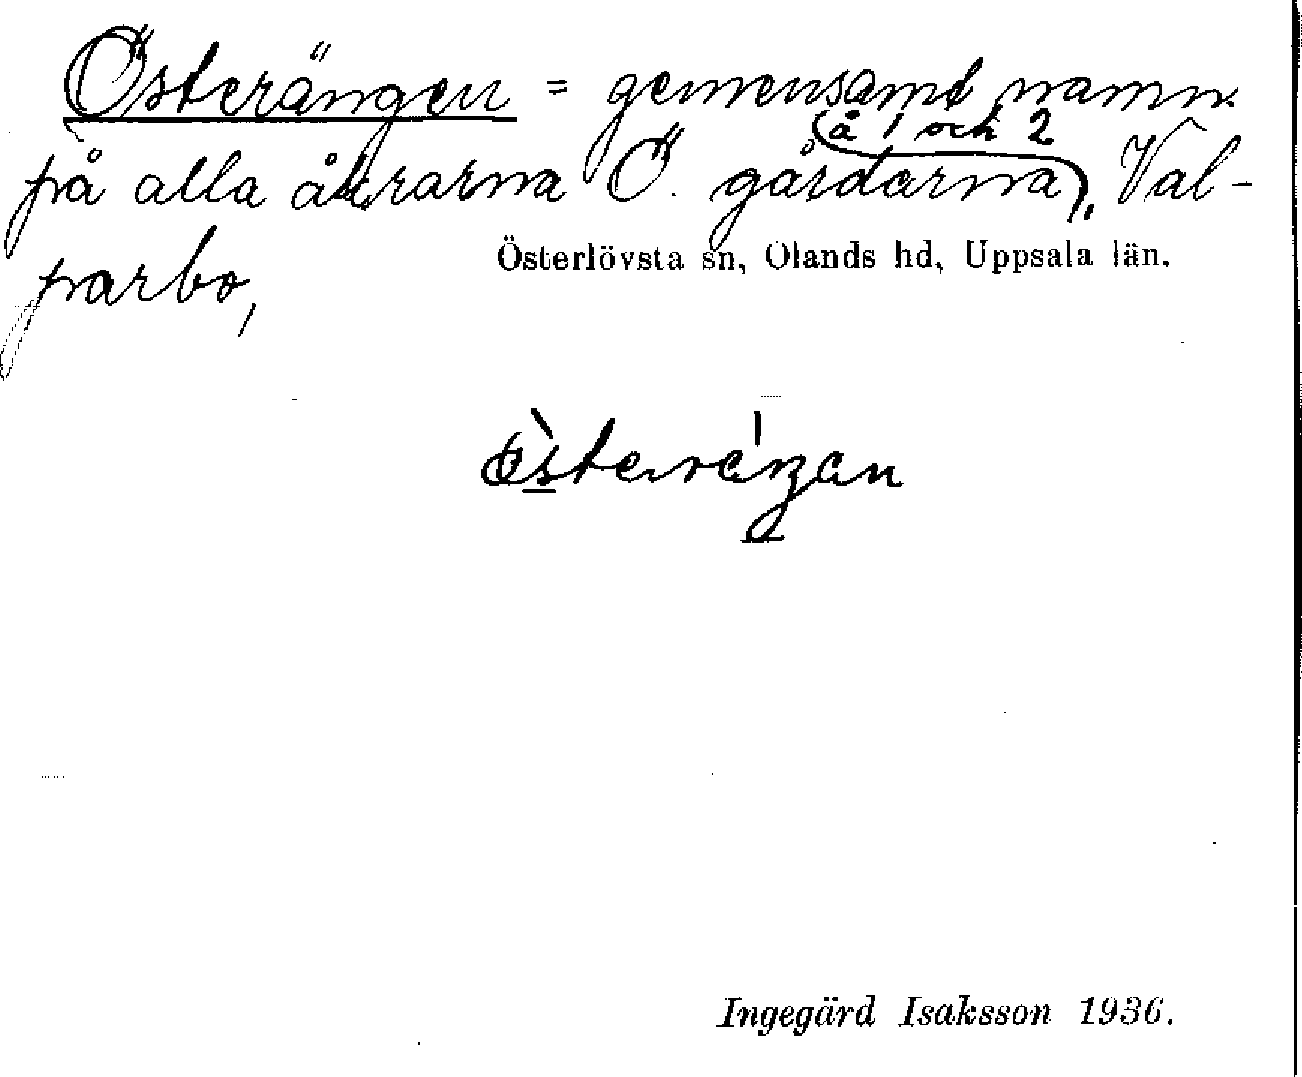 Österängen = gemensamt namn
på alla åkrarna Ö. gårdarna å 1 och 2, Val-
parbo,
Österlövsta sn, Olands hd, Uppsala län.
Ingegärd Isaksson 1936.